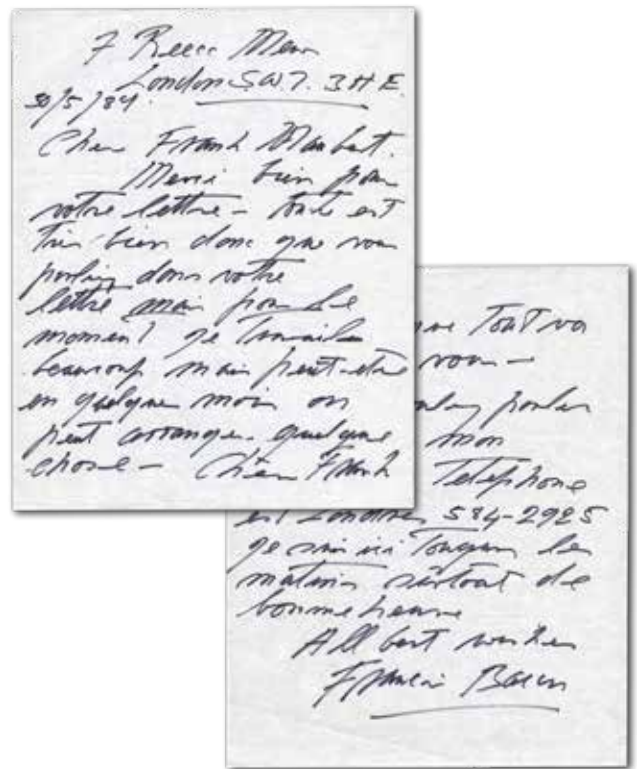 7 Reece Mews
London S.W.7. 3HE.
30/5/84.
Cher Frank Maubert.
Merci bien pour
votre lettre – tout est
très bien donc que vous
parliez dans votre
lettre mais pour le
moment je travaille
beaucoup mais peut-etre
en quelque mois on
peut arranger quelque
chose – Cher Frank
Tout va
vous –
parler
mon
Telephone
est Londres 584-2925
je suis ici Toujours les
matins surtout de
bonne heure
All best wishes
Francis Bacon